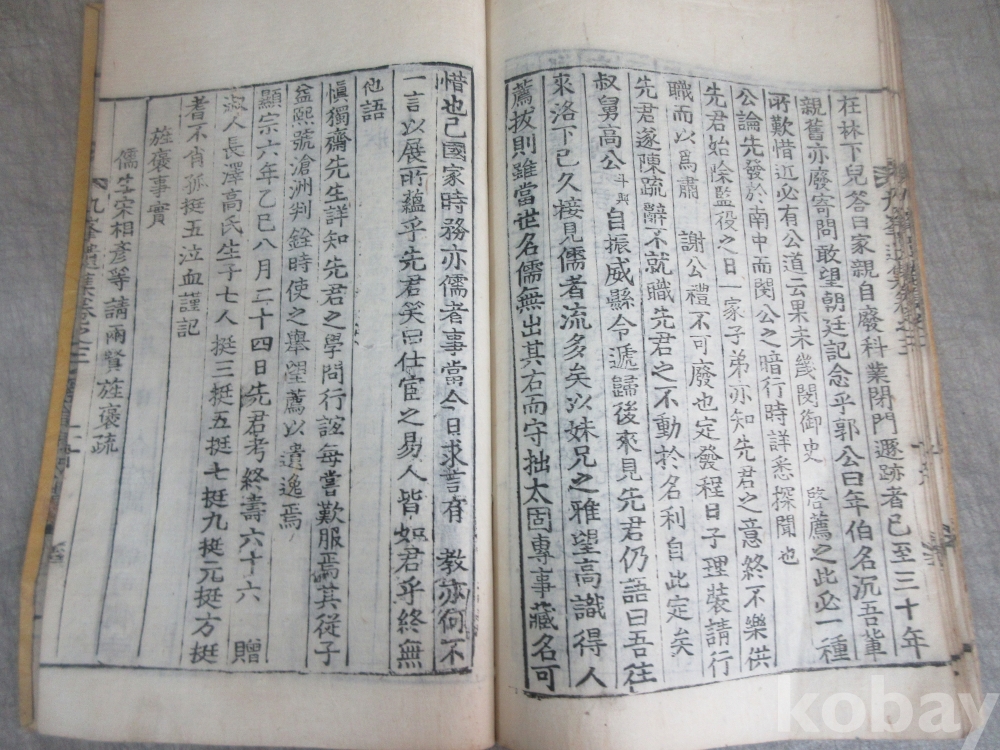 枉林下兒答曰家親自廢科業閉門遯跡者已至三十年
親舊亦廢寄問敢望朝廷記念乎郭公曰年伯名沉吾輩
所歎惜近必有公道云果未幾閔御史 啓薦之此必一種
公論先發於南中而閔公之暗行時詳悉探聞也
先君始除監役之日一家子弟亦知先君之意終不樂供
職而以爲肅 謝公禮不可廢也定發程日子理裝請行
先君遂陳疏辭不就職先君之不動於名利自此定矣
叔舅高公斗興自振威縣令遞歸後來見先君仍語曰吾往
來洛下已久接見儒者流多矣以妹兄之雅望高識得人
薦拔則雖當世名儒無出其右而守拙太固專事藏名可
惜也已國家時務亦儒者事當今日求言有 教亦何不
一言以展所蘊乎先君笑曰仕宦之易人皆如君乎終無
他語
愼獨齋先生詳知先君之學問行誼每嘗歎服焉其從子
益熙號滄洲判銓時使之舉望薦以遺逸焉
顯宗六年乙巳八月二十四日先君考終壽六十六 贈
淑人長澤高氏生子七人挺三挺五挺七挺九挺元挺方挺
耆不肖孤挺五泣血謹記
旌褒事實
儒生宋相彦等請兩賢旌褒疏
九峯遺集卷之三
kobay